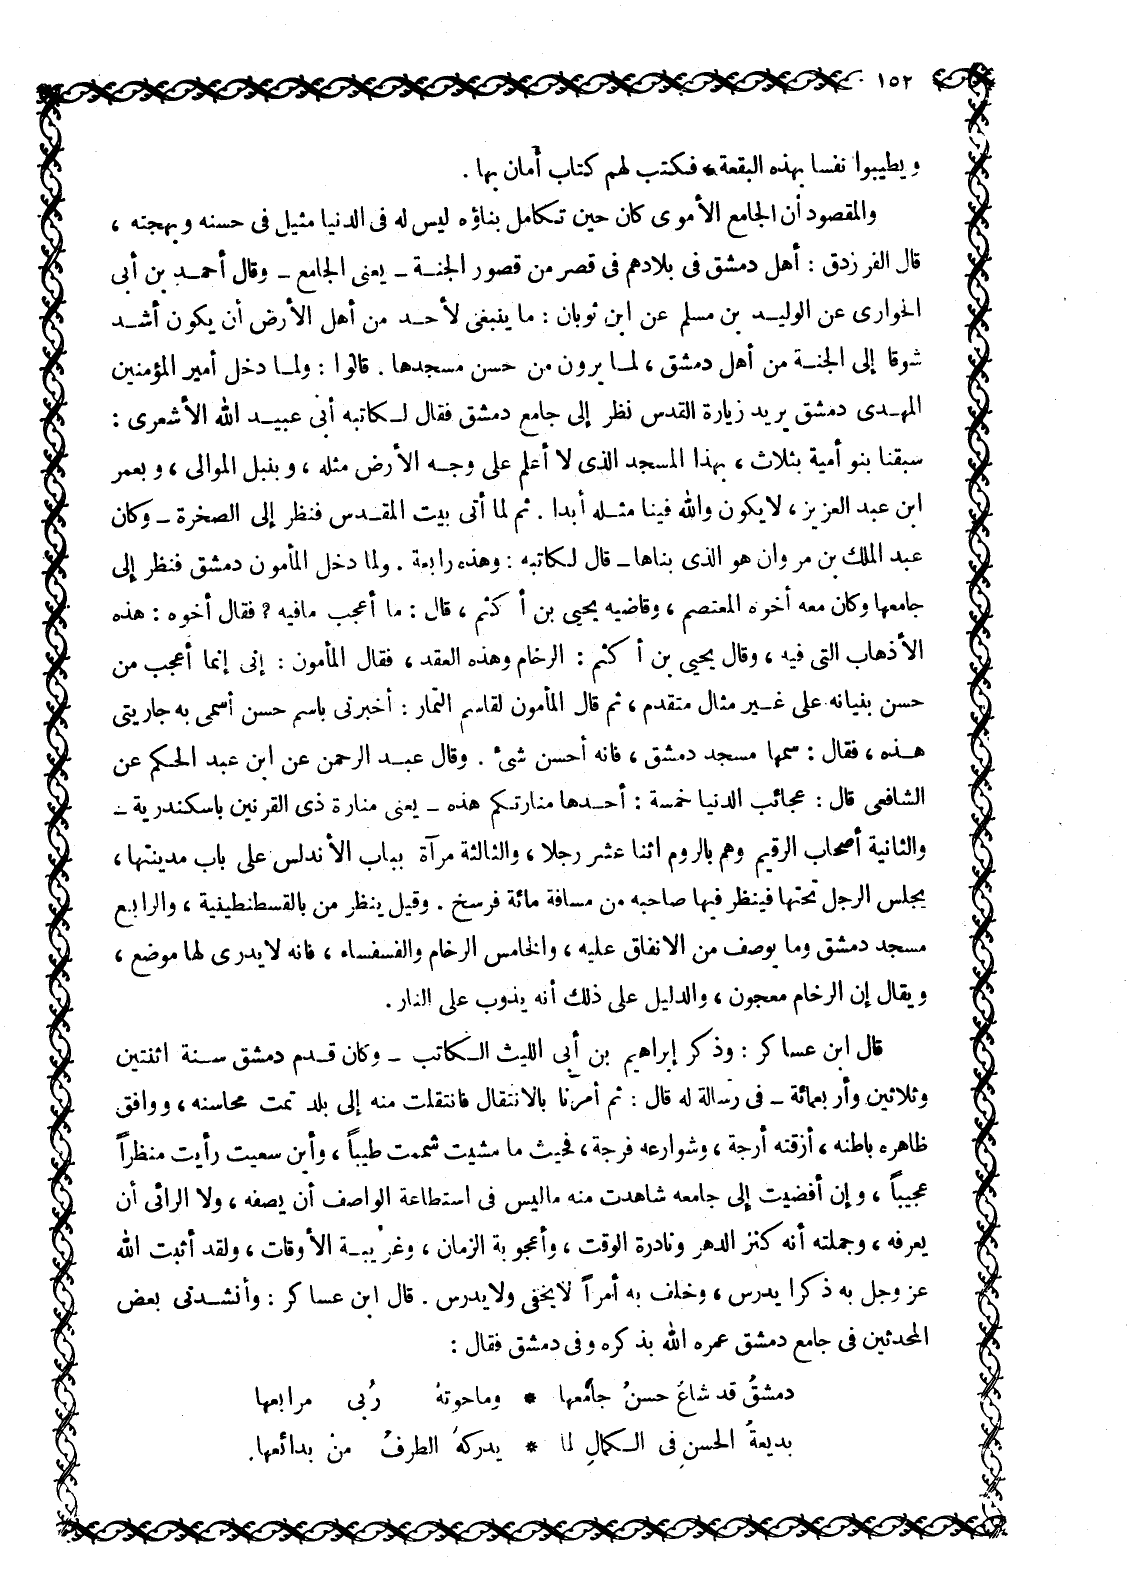 ١٥٢
ويطيبوا نفسا بهذه البقعة، فكتب لهم كتاب أمان بها .
والمقصود أن الجامع الأموى كان حين تكامل بناؤه ليس له فى الدنيا مثيل فى حسنه وبهجته ،
قال الفرزدق : أهل دمشق فى بلادهم فى قصر من قصور الجنة ـ يعنى الجامع ـ وقال أحمد بن أبى
الحوارى عن الوليد بن مسلم عن ابن ثوبان : ما ينبغى لأحد من أهل الأرض أن يكون أشد
شوقا إلى الجنة من أهل دمشق ، لما يرون من حسن مسجدها . قالوا : ولما دخل أمير المؤمنين
المهدى دمشق يريد زيارة القدس نظر إلى جامع دمشق فقال لكاتبه أبى عبيد الله الأشعرى :
سبقنا بنو أمية بثلاث ، بهذا المسجد الذى لا أعلم على وجه الأرض مثله ، وبنبل الموالى ، وبعمر
ابن عبد العزيز ، لا يكون والله فينا مثله أبدا . ثم لما أتى بيت المقدس فنظر إلى الصخرة ـ وكان
عبد الملك بن مروان هو الذى بناها ـ قال لكاتبه : وهذه رابعة . ولما دخل المأمون دمشق فنظر إلى
جامعها وكان معه أخوه المعتصم ، وقاضيه يحيى بن أكثم ، قال : ما أعجب مافيه ؟ فقال أخوه : هذه
الأذهاب التى فيه ، وقال يحيى بن أكثم : الرخام وهذه العقد ، فقال المأمون : إنى إنما أعجب من
حسن بنيانه على غير مثال متقدم ، ثم قال المأمون لقاسم التمار : أخبرنى باسم حسن أسمى به جاريتى
هذه ، فقال : سمها مسجد دمشق ، فانه أحسن شىء . وقال عبد الرحمن عن ابن عبد الحكم عن
الشافعى قال : عجائب الدنيا خمسة : أحدها منارتكم هذه ـ يعنى منارة ذى القرنين باسكندرية ـ
والثانية أصحاب الرقيم وهم بالروم اثنا عشر رجلا ، والثالثة مرآة بباب الأندلس على باب مدينتها ،
يجلس الرجل تحتها فينظر فيها صاحبه من مسافة مائة فرسخ . وقيل ينظر من بالقسطنطينية ، والرابع
مسجد دمشق وما يوصف من الانفاق عليه ، والخامس الرخام والفسفساء ، فانه لا يدرى لها موضع ،
ويقال إن الرخام معجون ، والدليل على ذلك أنه يذوب على النار .
قال ابن عساكر : وذكر إبراهيم بن أبى الليث الكاتب ـ وكان قدم دمشق سنة اثنتين
وثلاثين وأربعمائة ـ فى رسالة له قال : ثم أمرنا بالانتقال فانتقلت منه إلى بلد تمت محاسنه ، ووافق
ظاهره باطنه ، أزقته أرجة ، وشوارعه فرجة ، فحيث ما مشيت شممت طيباً ، وأين سعيت رأيت منظراً
عجيباً ، وإن أفضيت إلى جامعه شاهدت منه ماليس فى استطاعة الواصف أن يصفه ، ولا الرائى أن
يعرفه ، وجملته أنه كنز الدهر ونادرة الوقت ، وأعجوبة الزمان ، وغريبة الأوقات ، ولقد أثبت الله
عز وجل به ذكرا يدرس ، وخلف به أمراً لا يخفى ولا يدرس . قال ابن عساكر : وأنشدنى بعض
المحدثين فى جامع دمشق عمره الله بذكره وفى دمشق فقال :
دمشقُ قد شاعَ حسنُ جامعها * وماحوتهُ رُبى مرابعها
بديعةُ الحسنِ فى الكمالِ لما * يدركهُ الطرفُ منْ بدائعها .